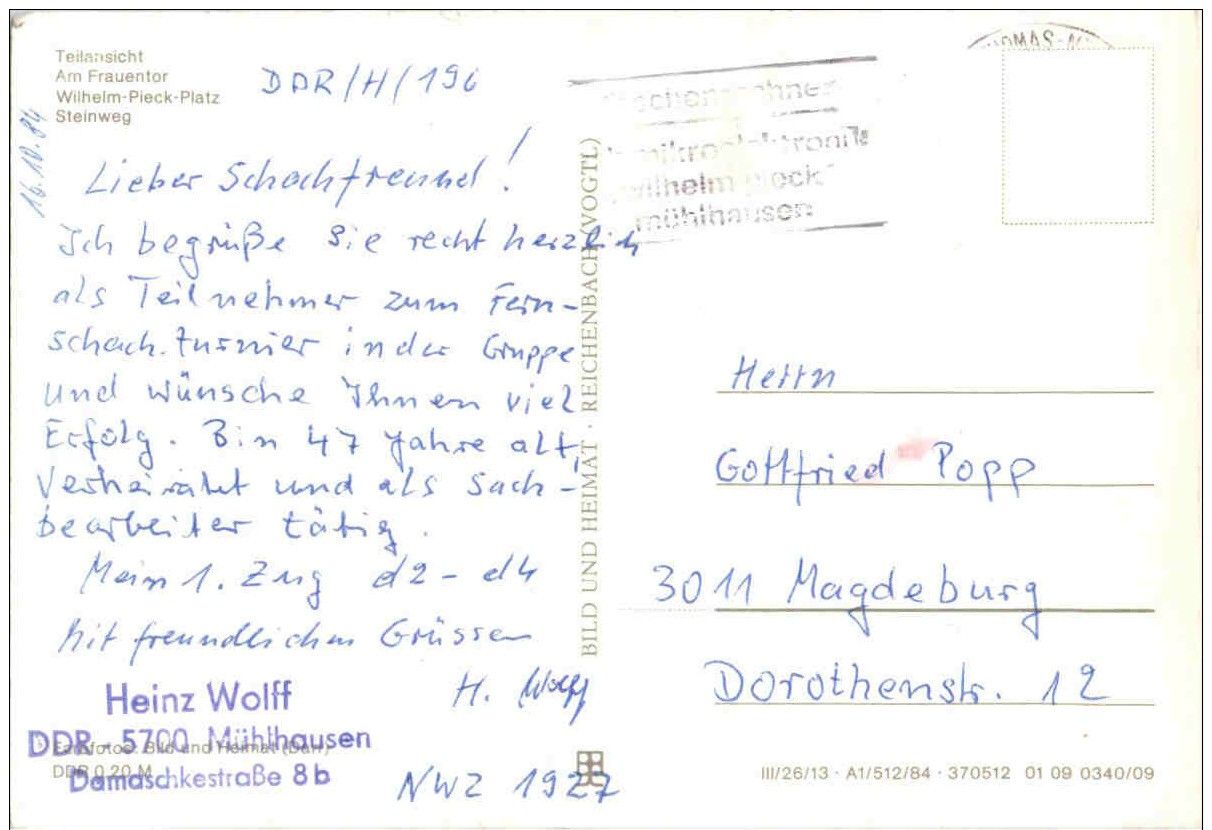 Teilansicht
Am Frauentor
Wilhelm-Pieck-Platz
Steinweg
DDR/H/196
16.10.84
Lieber Schachfreund!
Ich begrüße Sie recht herzlich
als Teilnehmer zum Fern-
schach.turnier in der Gruppe
und wünsche Ihnen viel
Erfolg. Bin 47 Jahre alt,
Verheiratet und als Sach-
bearbeiter tätig.
Mein 1. Zug d2-d4
Mit freundlichen Grüssen
H. Wolff
Heinz Wolff
DDR-5700 Mühlhausen
Damaschkestraße 8b
Farbfotos: Bild und Heimat
DDR 0,20 M
NWZ 1927
BILD UND HEIMAT · REICHENBACH (VOGTL)
mikroelektronik
wilhelm pieck
mühlhausen
Herrn
Gottfried Popp
3011 Magdeburg
Dorothenstr. 12
III/26/13 · A1/512/84 · 370512 01 09 0340/09